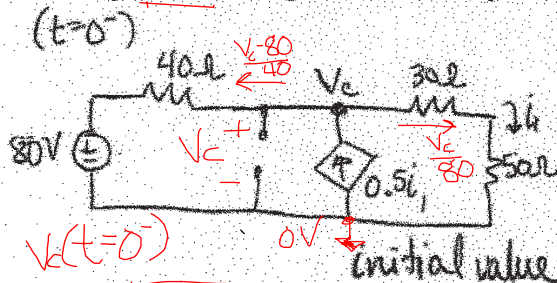 (t=0⁻)
40Ω
Vc-80
40
Vc
30Ω
80V
Vc
+
-
0.5i,
Vc
80
i
50Ω
Vc(t=0⁻)
0V
initial value